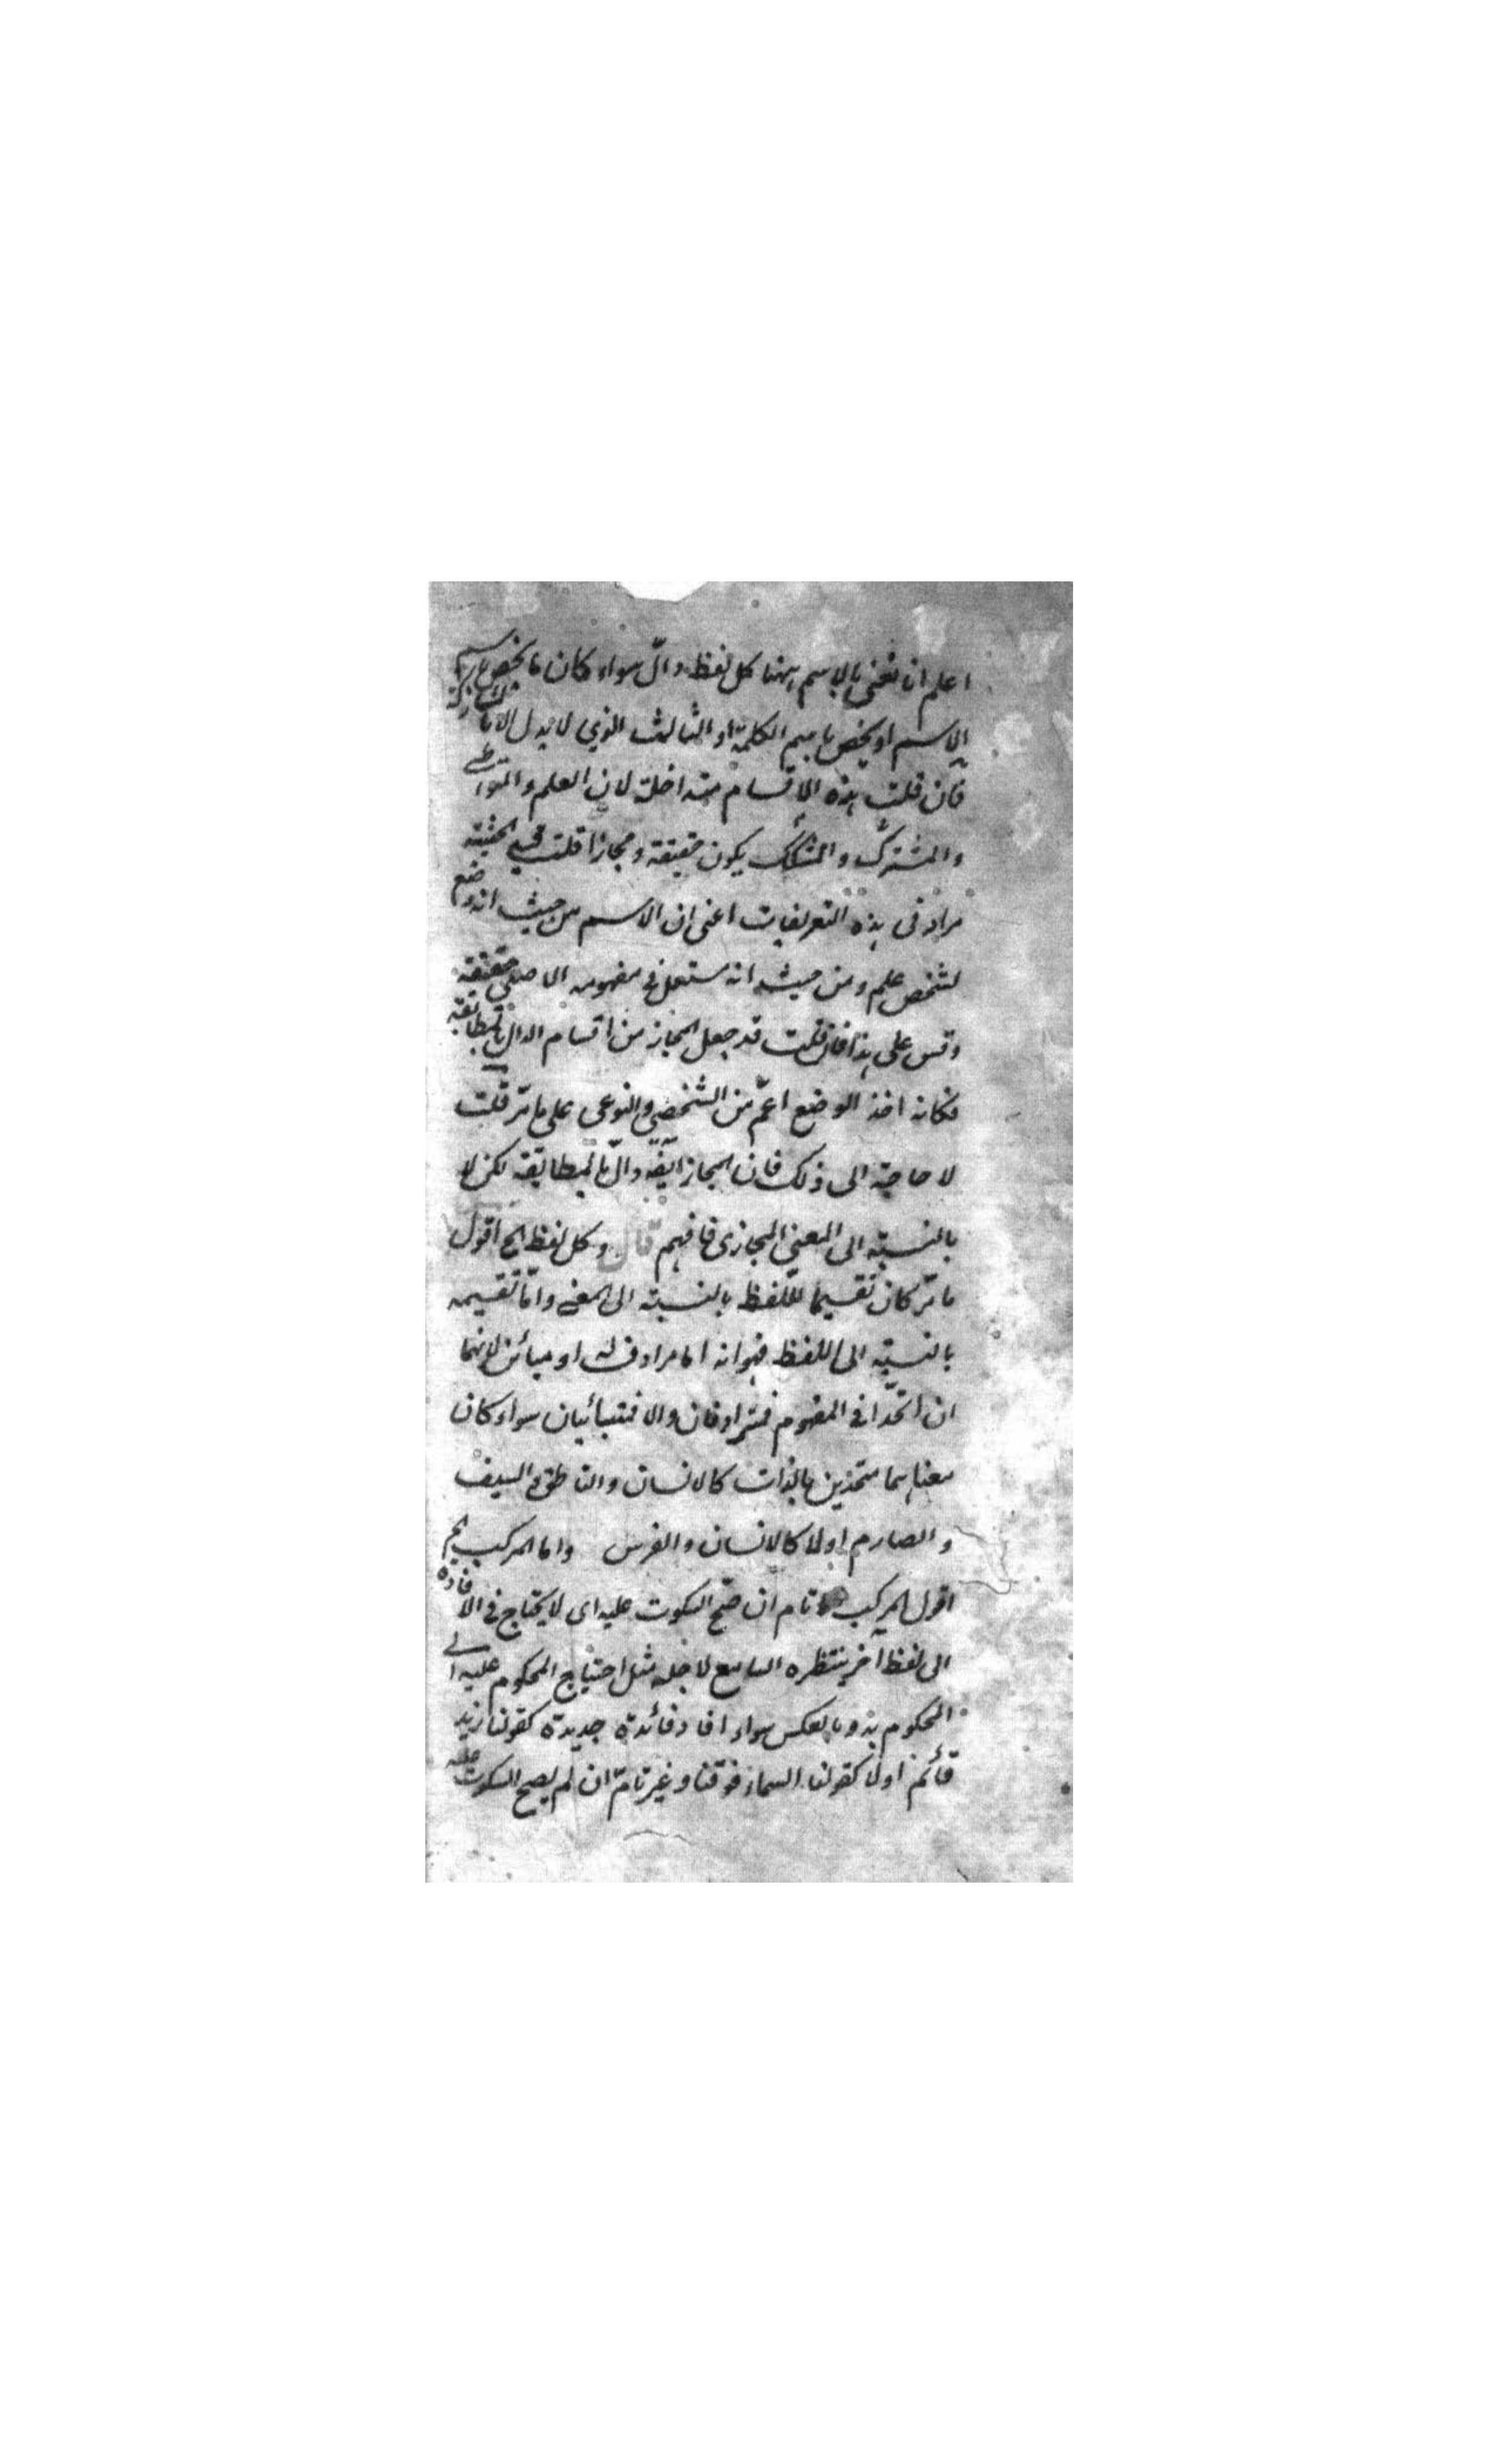 اعلم انا نعنى بالاسم ههنا كل لفظ دالّ سواء كان ما يخص باسم
الاسم او يخص باسم الكلمة او الثالث الذي لا يدل الا بالمشاركة
فان قلت هذه الاقسام متداخلة لان العلم والمتواطى
والمشترك والمشكك يكون حقيقة ومجازا قلت قيد الحيثية
مراد فى هذه التعريفات اعنى ان الاسم من حيث انه وضع
لشخص علم ومن حيث انه مستعمل فى مفهومه الاصلى حقيقة
وقس على هذا فان قلت قد جعل المجاز من اقسام الدال بالمطابقة
فكانه اخذ الوضع اعمّ من الشخصى والنوعى على ما مرّ قلت
لا حاجة الى ذلك فان المجاز ايضا دالّ بالمطابقة لكن لا
بالنسبة الى المعنى المجازى فافهم قال وكل لفظ الخ اقول
ما مرّ كان تقسيما للّفظ بالنسبة الى المعنى وامّا تقسيمه
بالنسبة الى اللفظ فهو انه اما مرادف له او مبائن لانهما
ان اتحدّا فى المفهوم فمترادفان والا فمتبائنان سواء كان
معناهما متحدين بالذات كالانسان والناطق والسيف
والصارم اولا كالانسان والفرس واما المركب الخ
اقول المركب تام ان صحّ السكوت عليه اى لا يحتاج فى الافادة
الى لفظ آخر ينتظره السامع لاجله مثل احتياج المحكوم عليه الى
المحكوم به وبالعكس سواء افاد فائدة جديدة كقولنا زيد
قائم اولا كقولنا السماء فوقنا وغير تامّ ان لم يصح السكوت عليه